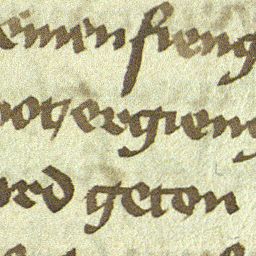 emen fieng
ot ergieng
ord geton